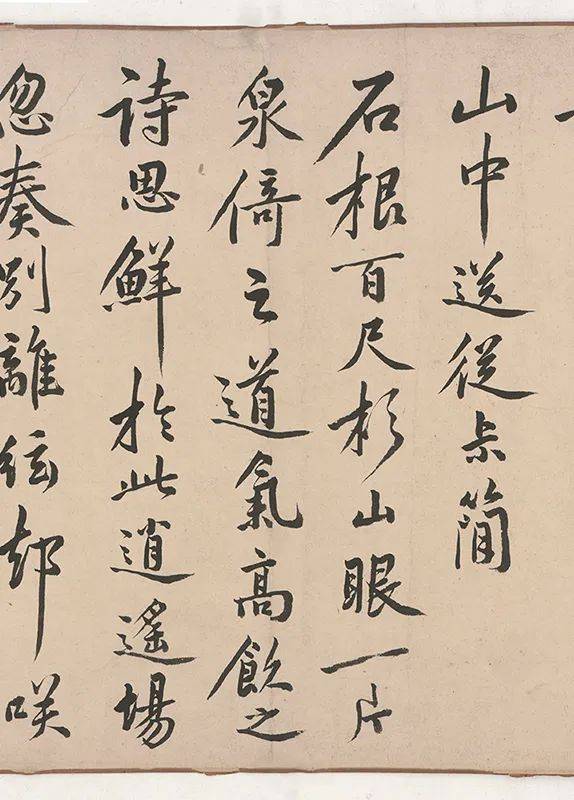 山中送從尗簡
石根百尺杉山眼一片
泉倚之道氣高飲之
詩思鮮於此逍遙場
忽奏別離絃却咲